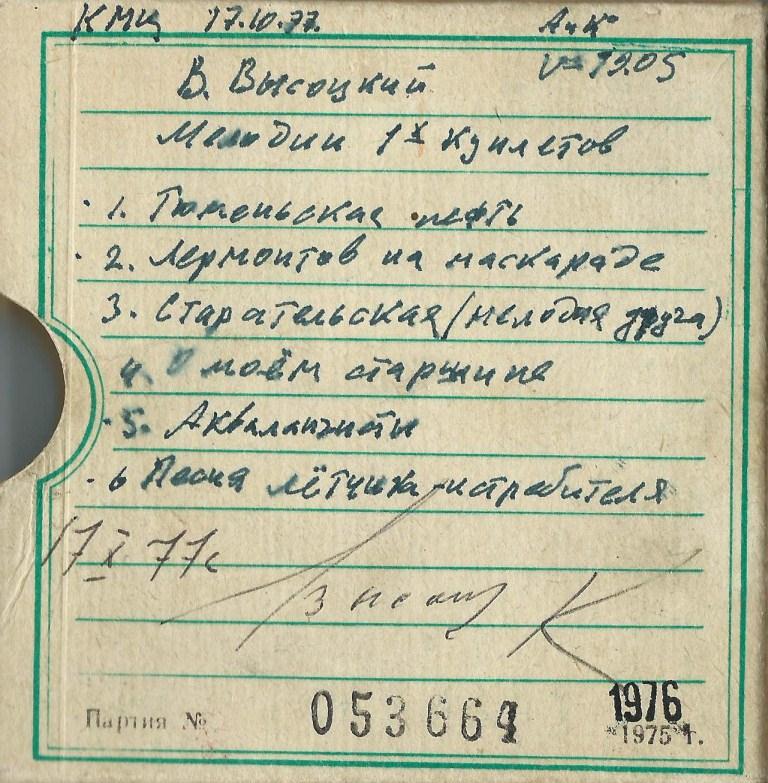 КМЦ 17.10.77. А и К°
V=1205
В. Высоцкий
Мелодии 1х куплетов
1. Тюменьская нефть
2. Лермонтов на маскараде
3. Старательская (мелодия друга)
4. О моём старшине
5. Аквалангисты
6 Песня лётчика-истребителя
17 X 77г
Партия № 053661
1976
"1975" г.